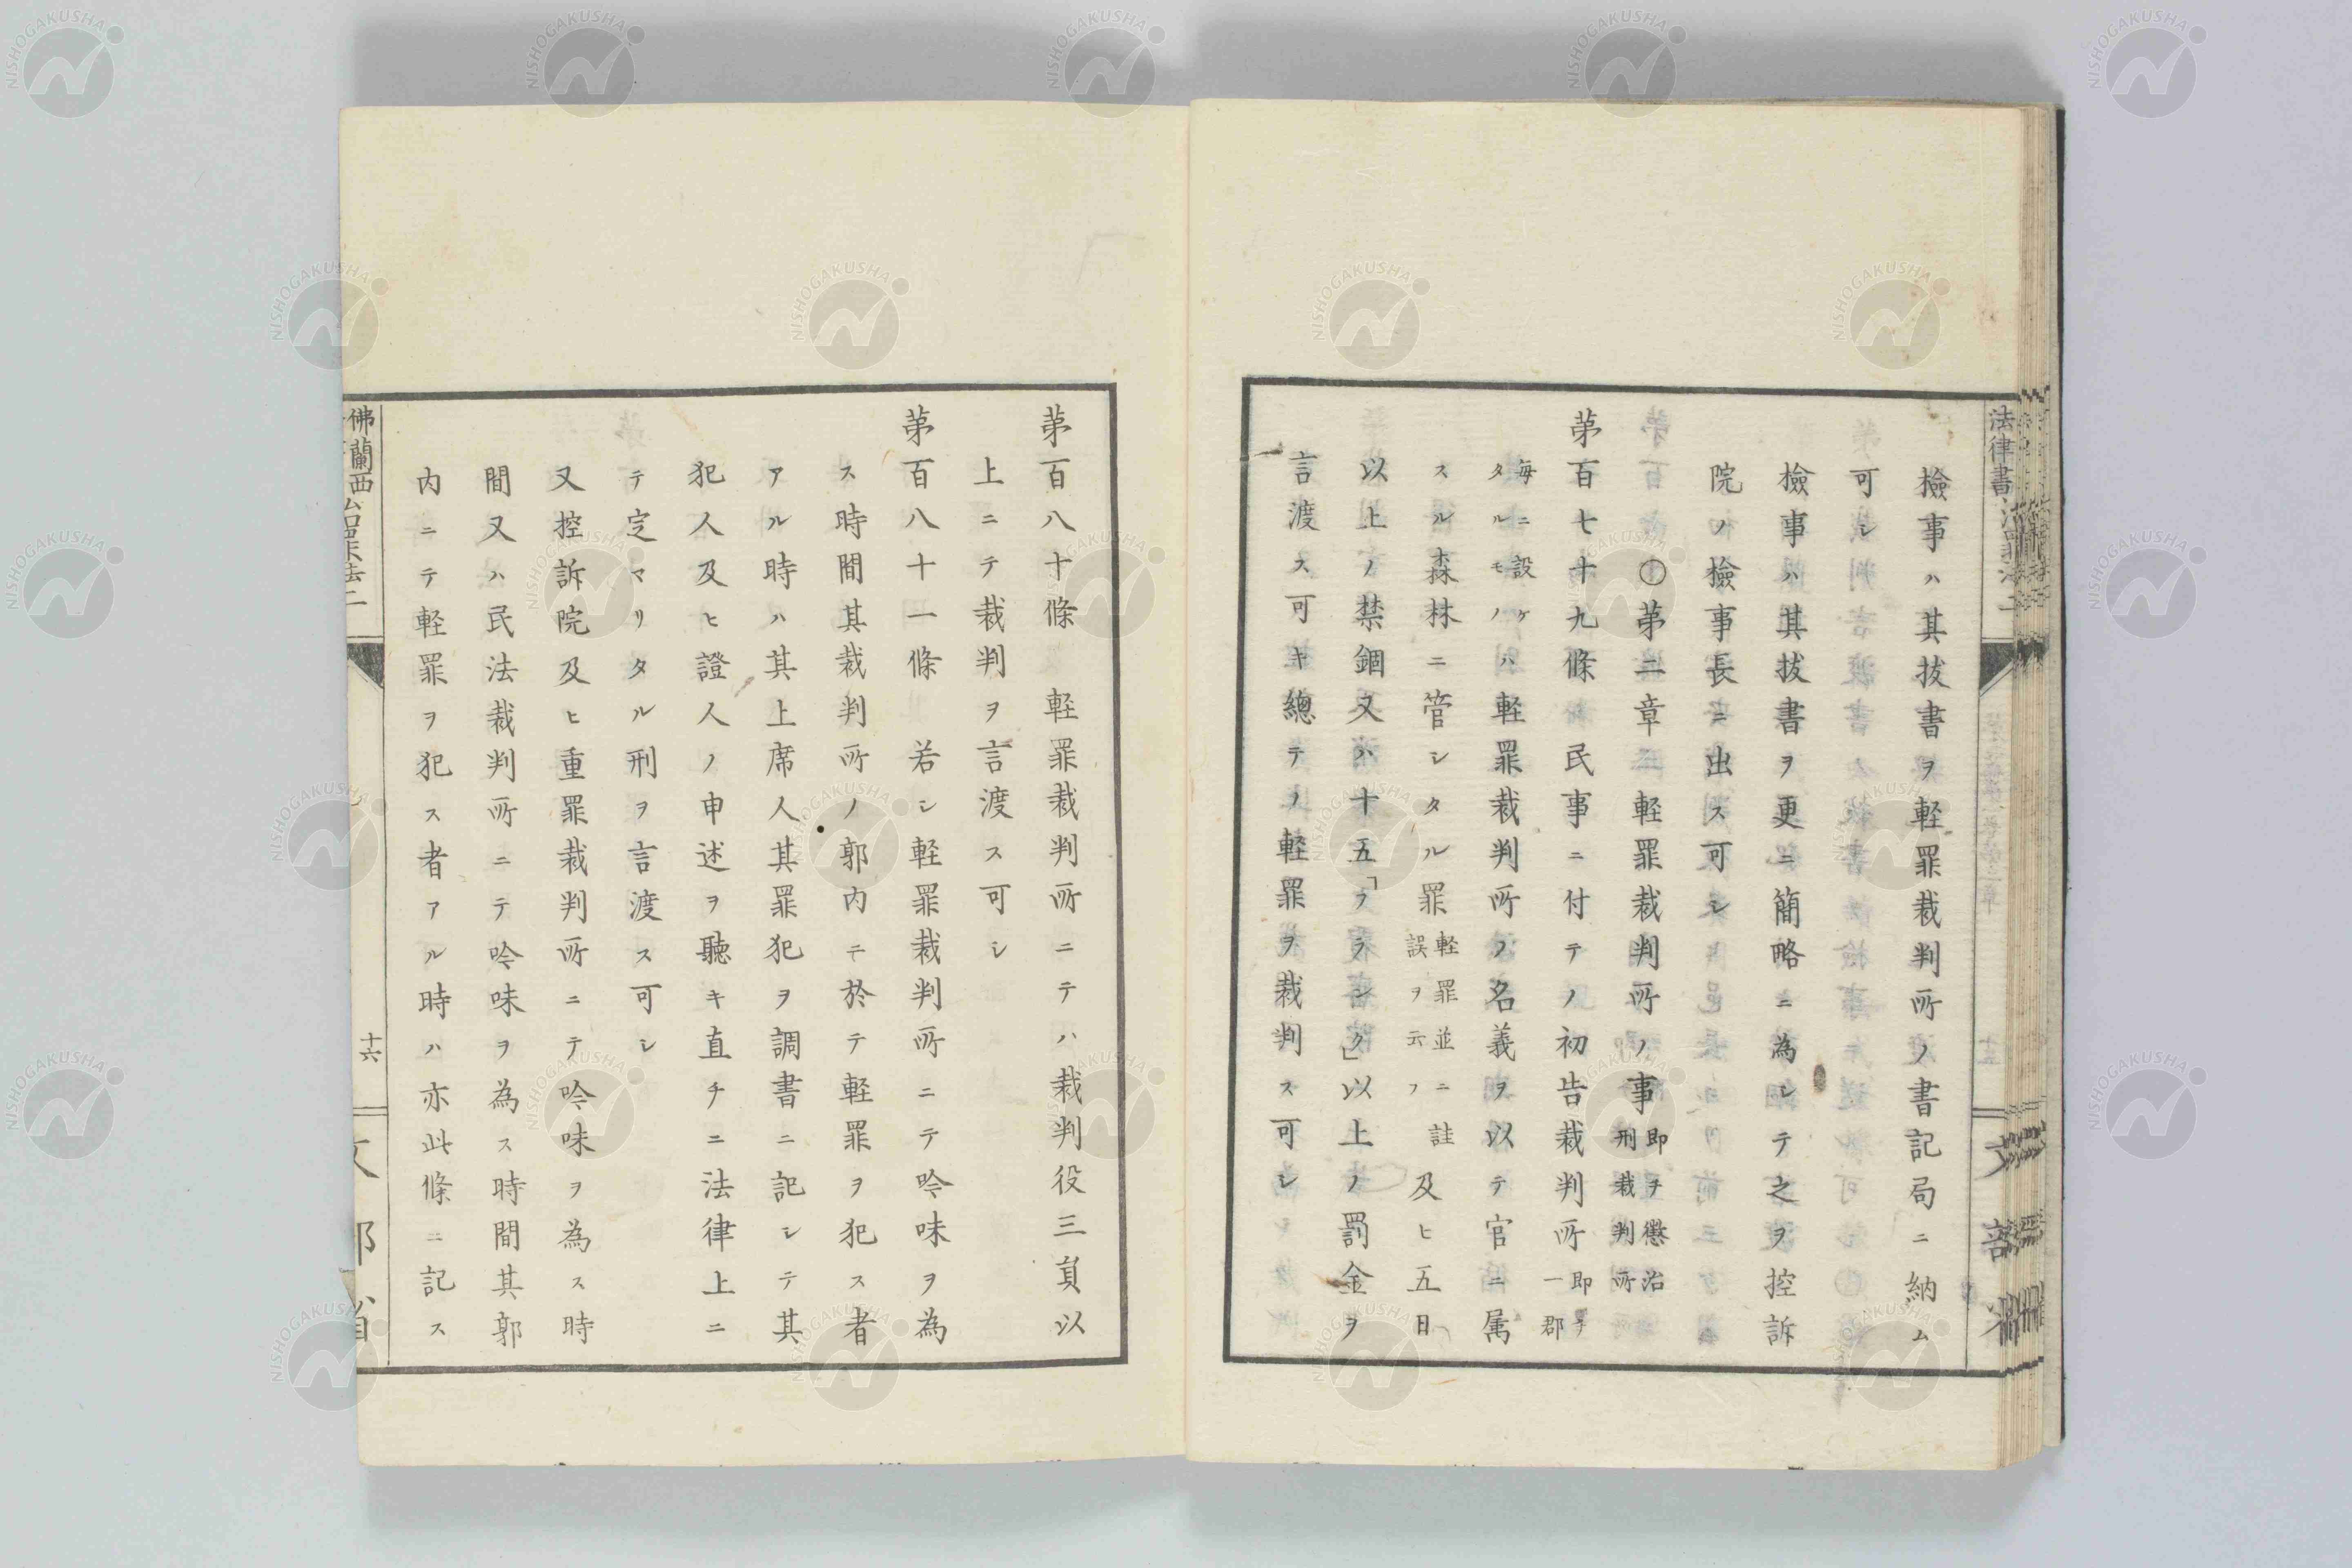 檢事ハ其拔書ヲ軽罪裁判所ノ書記局ニ納ム
可シ
檢事ハ其拔書ヲ更ニ簡略ニ為シテ之ヲ控訴
院ノ檢事長ニ出ス可シ
〇第二章 軽罪裁判所ノ事 即ヲ懲治
刑裁判所
第百七十九條 民事ニ付テノ初告裁判所 即チ
一郡
毎ニ設ケ
タルモノハ軽罪裁判所ノ名義ヲ以テ官ニ属
スル森林ニ管シタル罪 軽罪並ニ註
誤ヲ云フ 及ヒ五日
以上ノ禁錮又ハ十五「フランク」以上ノ罰金ヲ
言渡ス可キ總テノ軽罪ヲ裁判ス可シ
第百八十條 軽罪裁判所ニテハ裁判役三員以
上ニテ裁判ヲ言渡ス可シ
第百八十一條 若シ軽罪裁判所ニテ吟味ヲ為
ス時間其裁判所ノ郭内ニ於テ軽罪ヲ犯ス者
アル時ハ其上席人其罪犯ヲ調書ニ記シテ其
犯人及ヒ證人ノ申述ヲ聽キ直チニ法律上ニ
テ定マリタル刑ヲ言渡ス可シ
又控訴院及ヒ重罪裁判所ニテ吟味ヲ為ス時
間又ハ民法裁判所ニテ吟味ヲ為ス時間其郭
内ニテ軽罪ヲ犯ス者アル時ハ亦此條ニ記ス
佛蘭西
十六
法律書
文部省
NISHOGAKUSHA